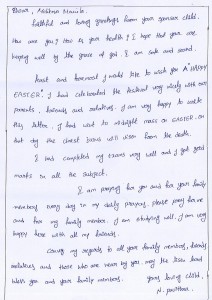 Dear, Madhur
Faithful and loving greetings from your sponsor child.
How are you? How is your health? I hope that you are
keeping well by the grace of god. I am safe and sound.
First and foremost I would like to wish you A "HAPPY
EASTER". I had celebrated the festival very nicely with our
parents, friends and relatives. I am very happy to write
this letter. I had went to midnight mass on EASTER. on
that day the christ Jesus will risen from the death.
I was completed my exams very well and I got good
marks in all the subject.
I am praying for you and for your family
members every day in my daily prayers. please pray for me
and for my family member. I am studying well. I am very
happy here with all my friends.
Convey my regards to all your family members, friends
relatives and those who are near by you. may the Jesus lord
bless you and your family member.
Your loving child,
N.